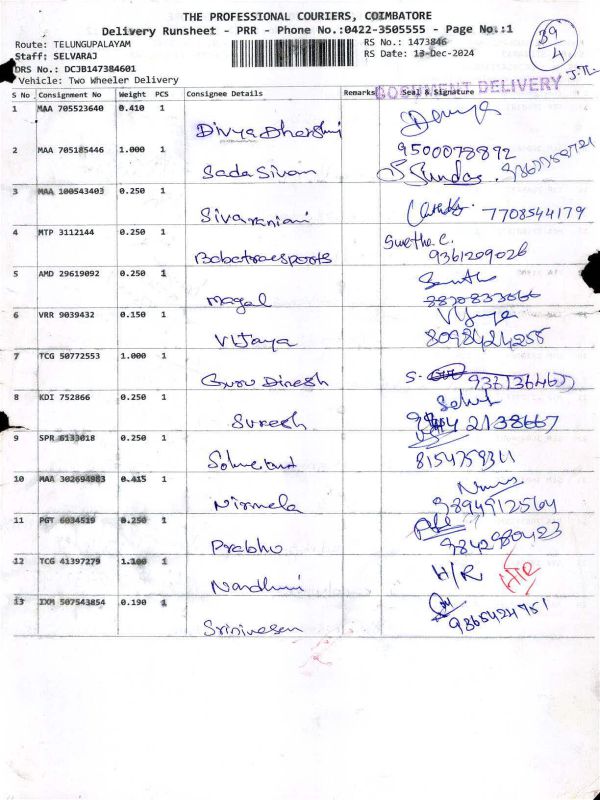 THE PROFESSIONAL COURIERS, COIMBATORE
Delivery Runsheet - PRR - Phone No.:0422-3505555 - Page No.:1
Route: TELUNGUPALAYAM
Staff: SELVARAJ
DRS No.: DCJB147384601
Vehicle: Two Wheeler Delivery
RS No.: 1473846
RS Date: 13-Dec-2024
39/4
DELIVERY
S No Consignment No Weight PCS Consignee Details Remarks Seal & Signature
1 MAA 705523640 0.410 1 Divya Dharshni
2 MAA 705185446 1.000 1 Sada Sivam 9500078892
S. Sundar.
3 MAA 100543403 0.250 1 Sivaranjani 7708544179
4 MTP 3112144 0.250 1 Babatraesports Swetha C. 9361209026
5 AMD 29619092 0.250 1 Magal
6 VRR 9039432 0.150 1 Vijaya Vijaya 8098424255
7 TCG 50772553 1.000 1 Guru Dinesh S.
8 KDI 752866 0.250 1 Suresh Selvi
9 SPR 6133018 0.250 1 8154759311
10 MAA 302694983 0.415 1 Nirmela 9894912564
11 PGT 6034519 0.250 1 Prabhu 9842980423
12 TCG 41397279 1.100 1 Nandhini H/R H/R
13 IXM 507543854 0.190 1 Srinivasen 9865424751